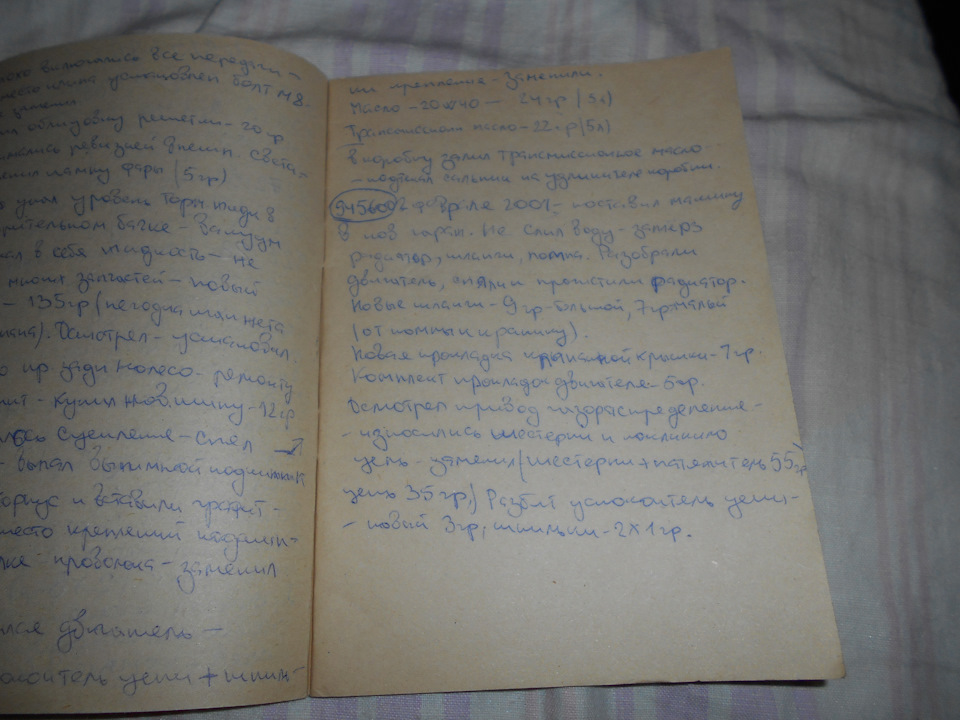 включались все передачи -
место установлен болт М8-
облицовку решетки - 20 гр
ревизией внешн. света -
лампу фары (5 гр)
упал уровень торм жидк в
бачке - вакуум
в себя жидкость - не
запчастей - новый
- 135 гр (не родная или не та
). Осмотрел - установил.
пр. задн колесо - ремонту
- купил нов. шину - 12 гр
сцепление - снял
- выпал выжимной подшипник
и вставили графит -
место креплений подшип-
проволока - заменил
двигатель -
цепи + шпиль-
ми крепления - заменили.
Масло - 20W40 - 24 гр (5л)
Трансмиссион масло - 22 гр (5л)
в коробку залил трансмиссионное масло
- сальник на удлинителе коробки.
945600 в феврале 2001 - поставил машину
в нов гараж. Не слил воду - замерз
радиатор, шланги, помпа. Разобрали
двигатель, сняли и пропаяли радиатор.
Новые шланги - 9 гр - большой, 7 гр малый
(от помпы к).
Новая прокладка клапанной крышки - 1 гр.
Комплект прокладок двигателя - 5 гр.
Осмотрел привод газораспределение -
- износились шестерни и
цепь - заменил (шестерни + натяжитель 55 гр
цепь 35 гр.) Разбит успокоитель цепи -
- новый 3 гр; шпильки - 2 х 1 гр.